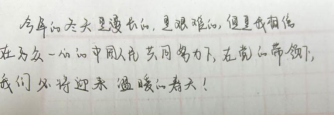 今年的冬天是漫长的,是艰难的,但是我相信
在万众一心的中国人民共同努力下,在党的带领下,
我们必将迎来温暖的春天!